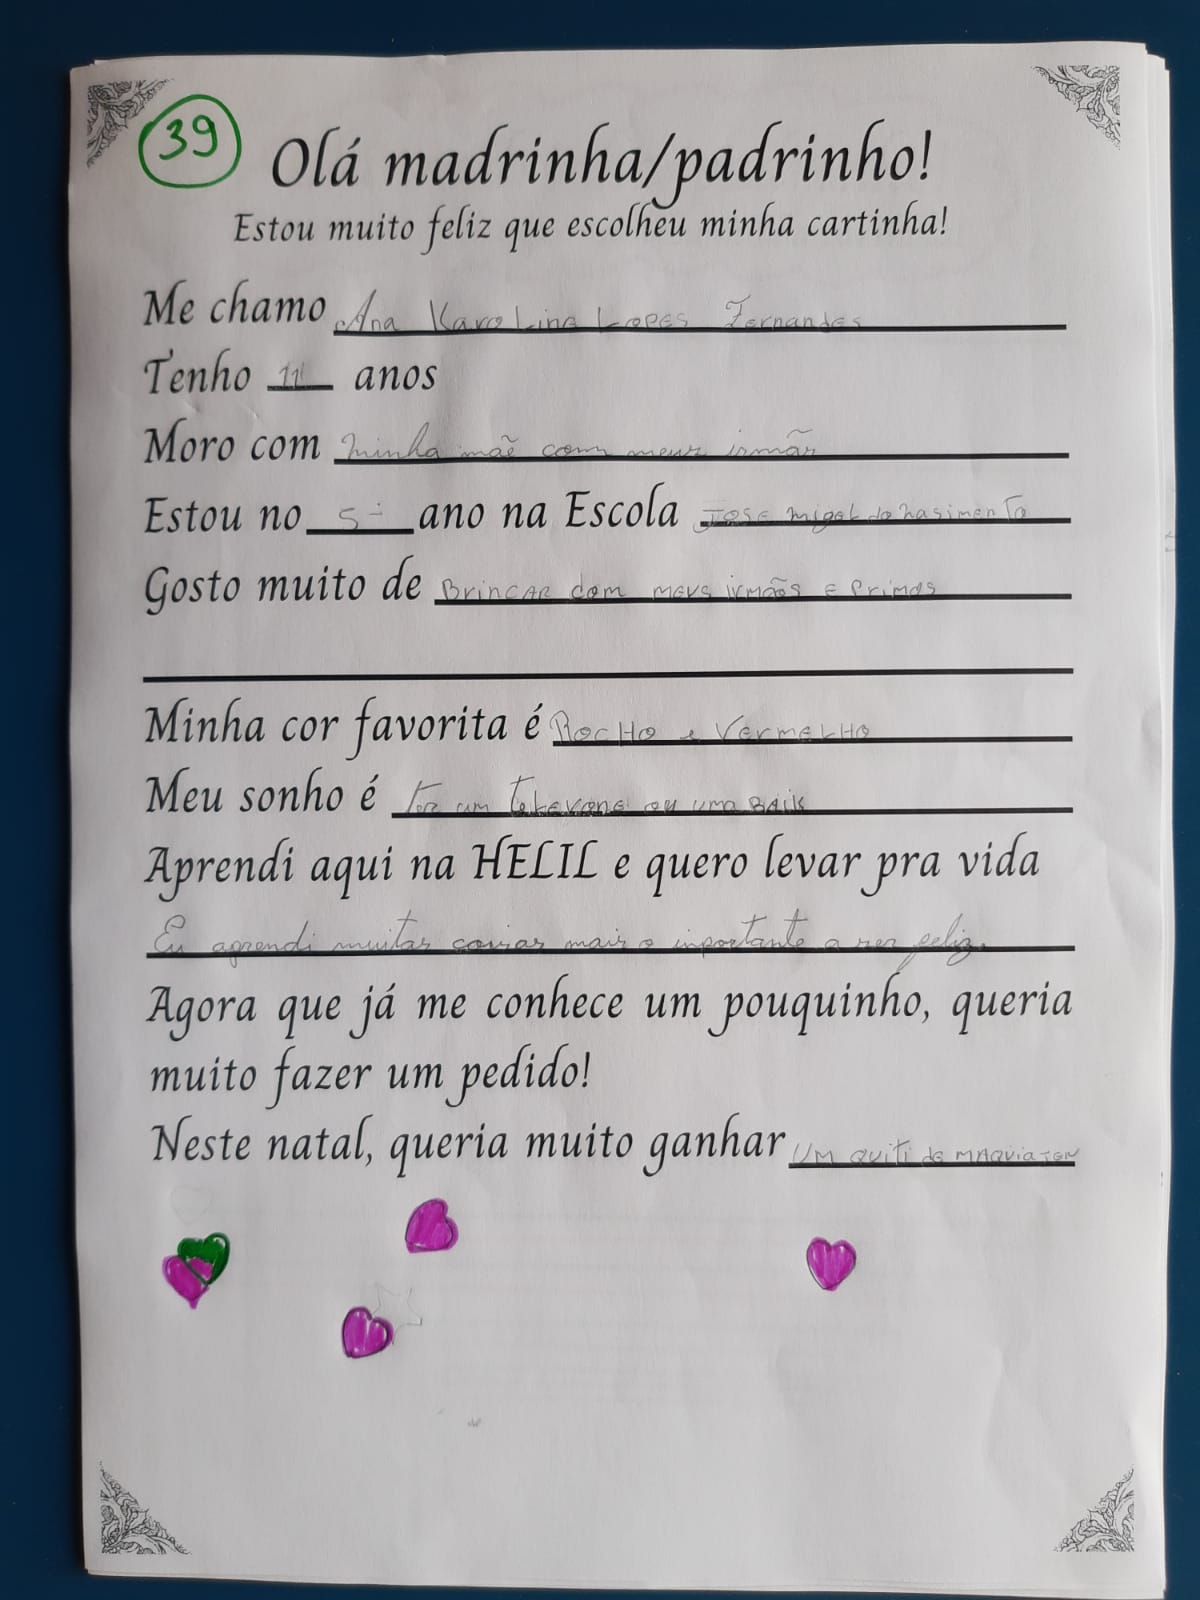 39
Olá madrinha/padrinho!
Estou muito feliz que escolheu minha cartinha!
Me chamo Ana Karolina Lopes Fernandes
Tenho 11 anos
Moro com minha mãe com meus irmãs
Estou no 5º ano na Escola Jose migel do nasimento
Gosto muito de Brincar com meus irmãos e Primos
Minha cor favorita é Rocho e Vermelho
Meu sonho é um ou uma
Aprendi aqui na HELIL e quero levar pra vida
Eu aprendi muitas coisas mais o inportante a ser feliz.
Agora que já me conhece um pouquinho, queria
muito fazer um pedido!
Neste natal, queria muito ganhar UM QUITI de MAQUIAJEN